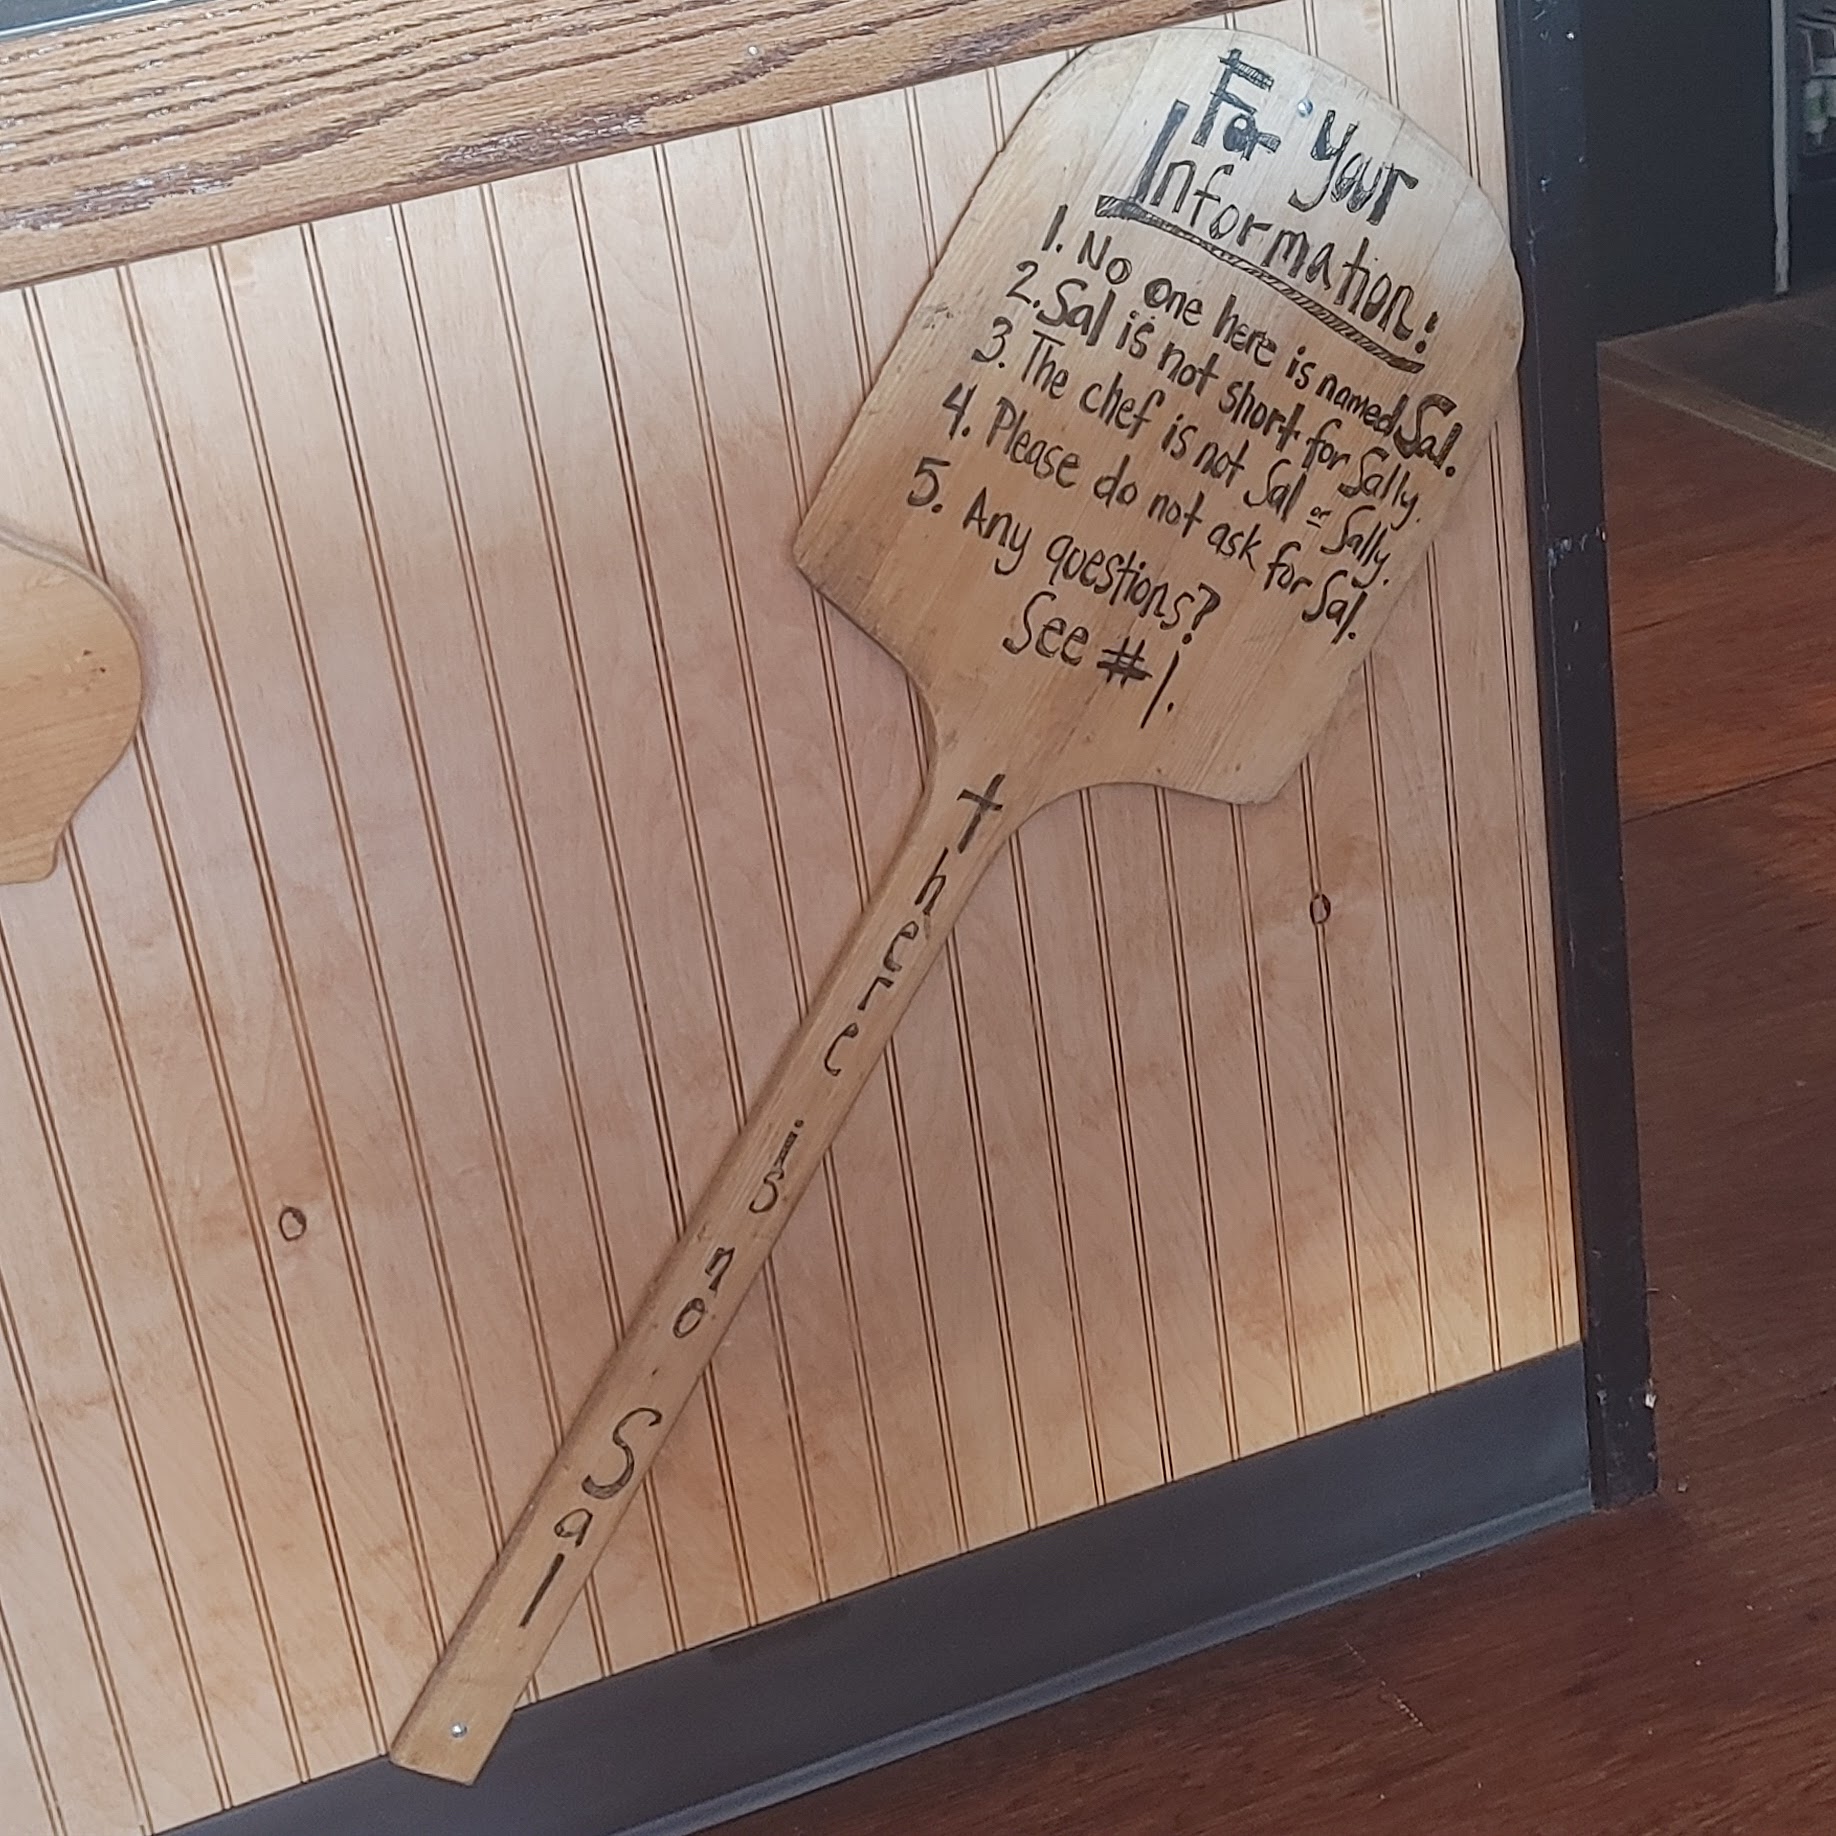 For your
Information:
1. No one here is named Sal.
2. Sal is not short for Sally.
3. The chef is not Sal or Sally.
4. Please do not ask for Sal.
5. Any questions?
See #1.
there is no Sal